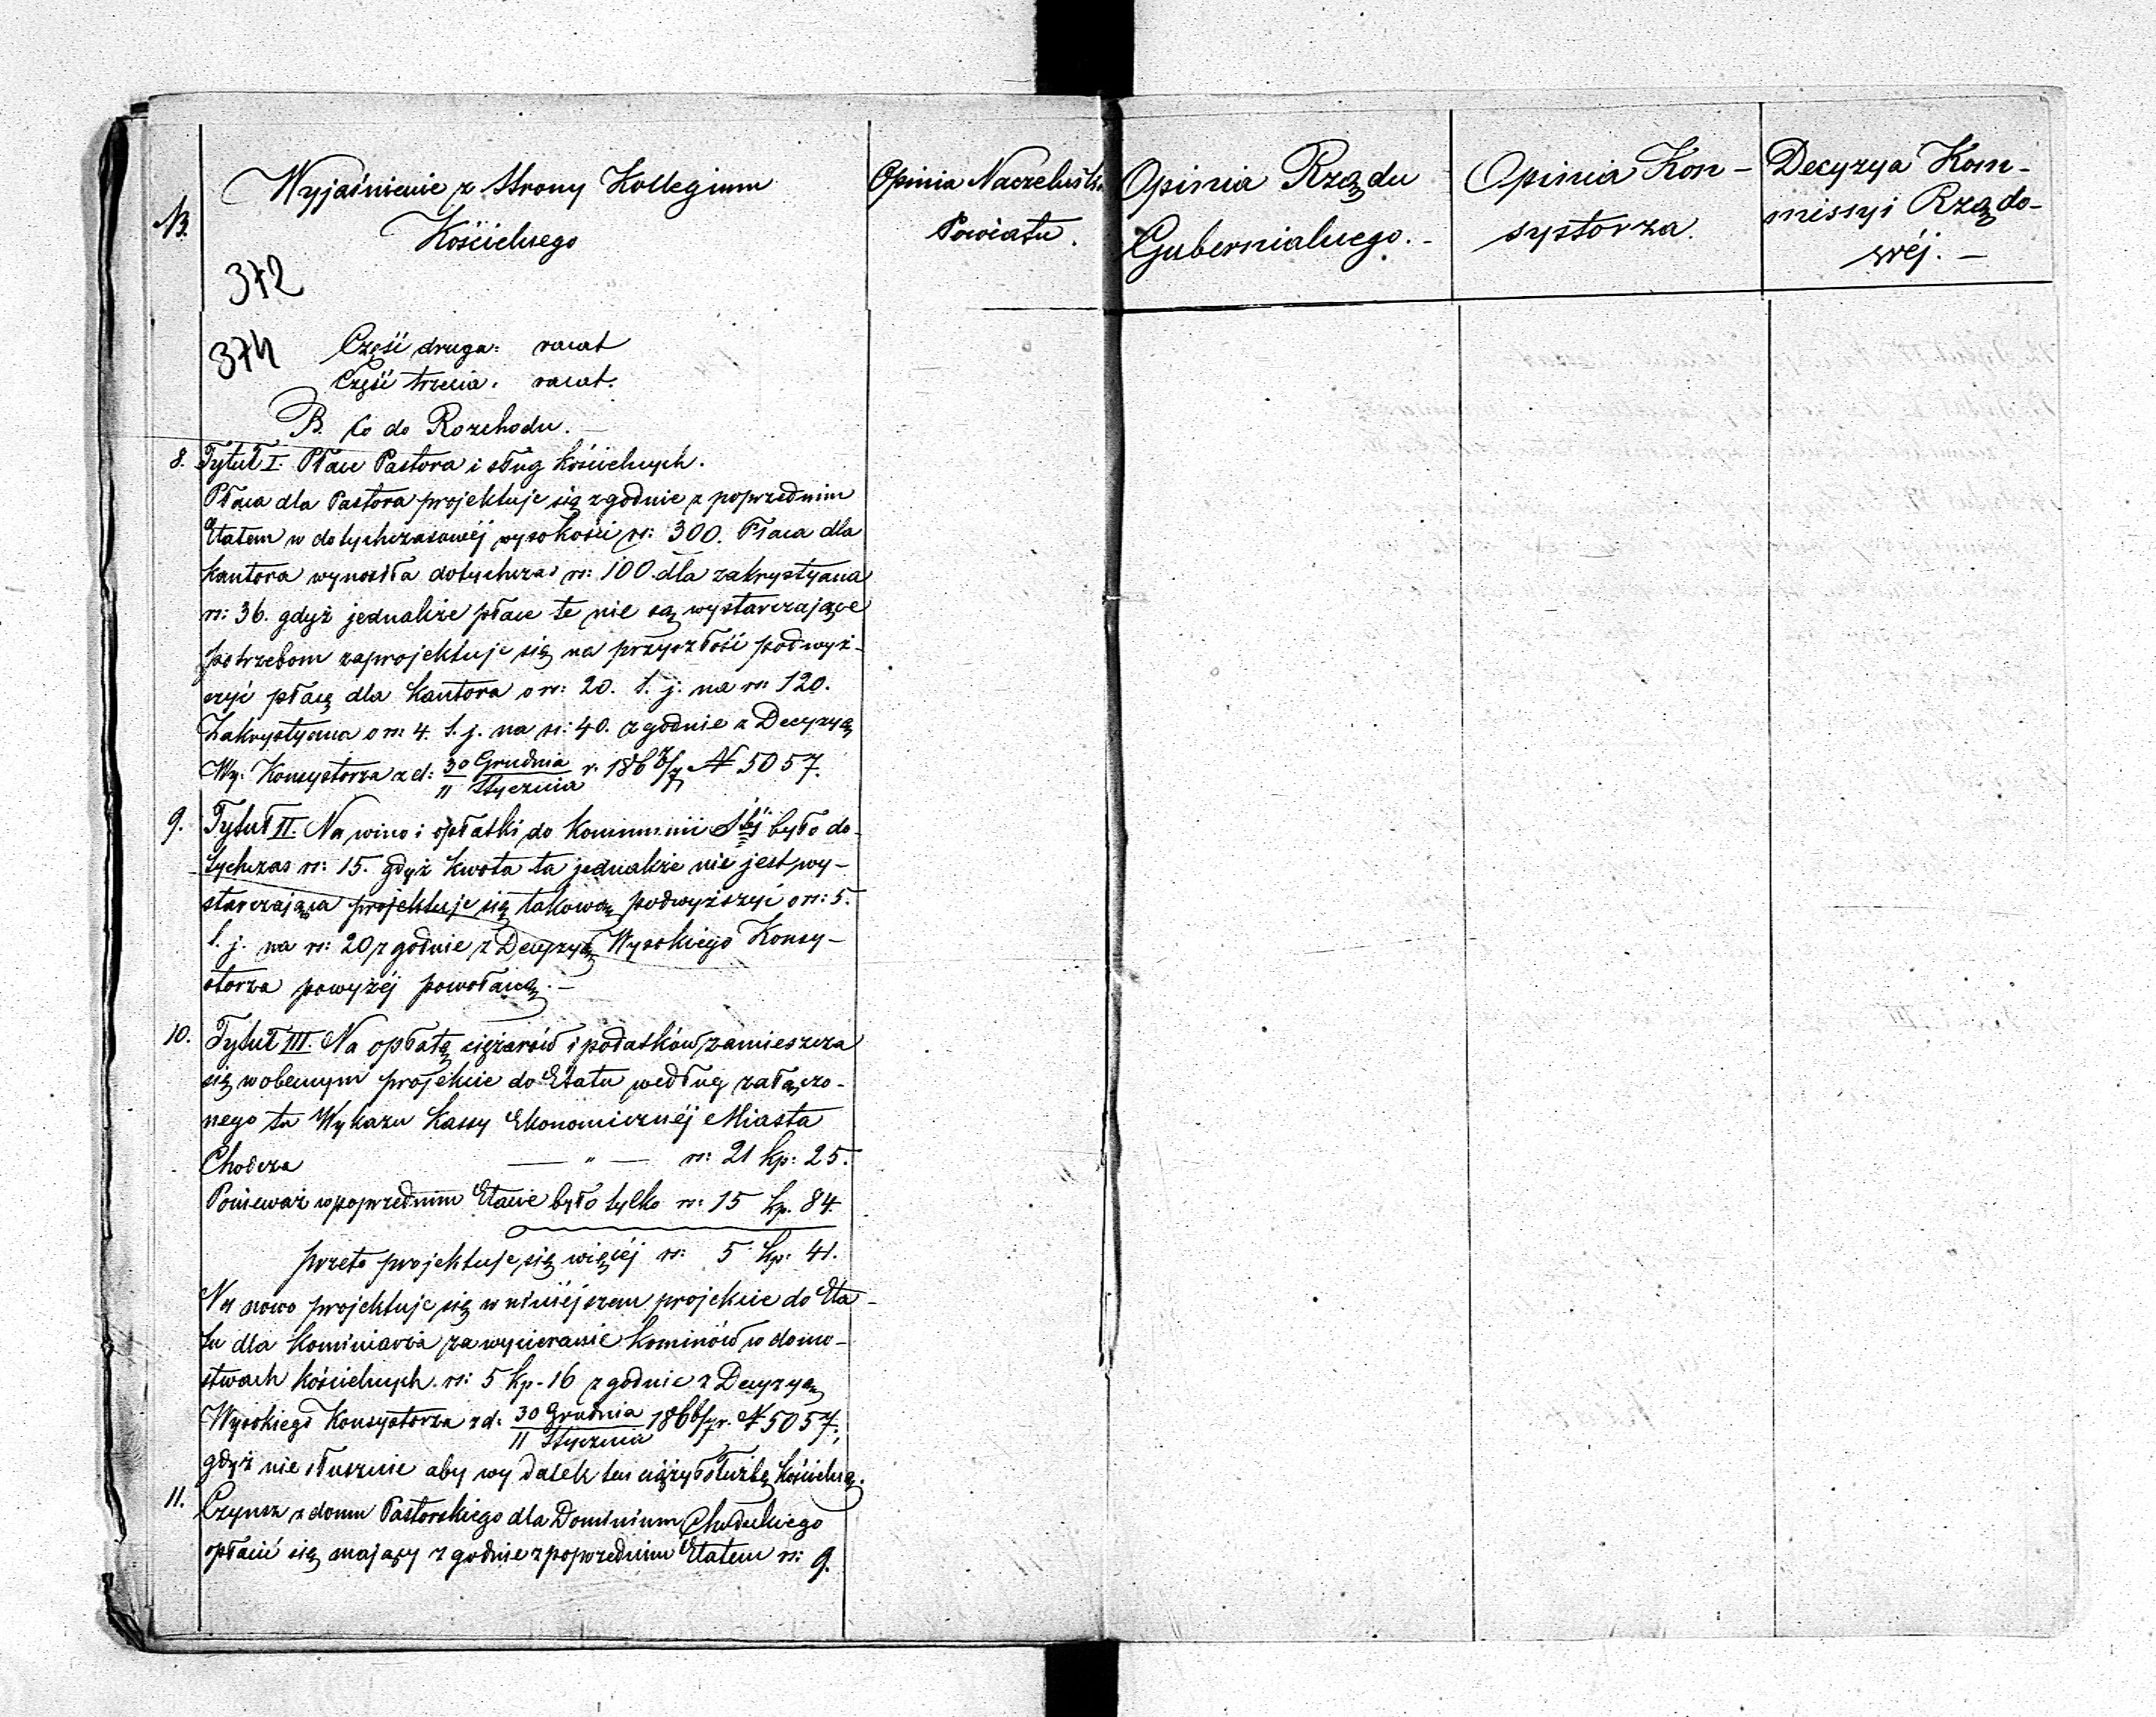 Nr.
Wyjaśnienie z Strony Kollegium
Kościelnego
Opinia Naczelnika
Powiatu.
Opinia Rządu
Gubernialnego. -
Opinia Kon-
systorza.
Decyzya Kom-
missyi Rządo-
wéj. -
372
374
Część druga: vacat
Część trzecia. vacat.
B. Co do Rozchodu. -
8. Tytuł I. Płace Pastora i sług kościelnych.
Płaca dla Pastora projektuje się zgodnie z poprzednim
Etatem w dotychczasowéj wysokości rs: 300. Płaca dla
kantora wynosiła dotychczas rs: 100. dla zakrystyana
rs: 36. gdyż jednakże płace te nie są wystarczające
potrzebom zaprojektuje się na przyszłość podwyż-
szyć płacę dla kantora o rs: 20. t. j. na rs 120.
Zakrystyana o rs: 4. t. j. na rs: 40. zgodnie z Decyzyą
Wy: Konsystorza z d: 30 Grudnia / 11 Stycznia r. 1866/7 N 5057.
9. Tytuł II. Na wino i opłatki do Kommunii Stéj było do-
tychczas rs: 15. gdyż kwota ta jednakże nie jest wy-
starczająca projektuje się takową podwyższyć o rs: 5.
t. j. na rs: 20 zgodnie z Decyzyą Wysokiego Konsy-
storza powyżéj powołaną. -
10. Tytuł III. Na opłatę ciężarów i podatków zamieszcza
się w obecnym projekcie do Etatu według załączo-
nego tu Wykazu Kassy Ekonomicznéj Miasta
Chodcza — " — rs: 21 kp: 25.
Ponieważ w poprzednim Etacie było tylko rs: 15 kp. 84.
przeto projektuje się więcéj rs: 5 kp: 41.
Na nowo projektuje się w niniéjszem projekcie do Eta-
tu dla kominiarza za wycieranie kominów w domo-
stwach kościelnych. rs: 5 kp. 16 zgodnie z Decyzyą
Wysokiego Konsystorza z d: 30 Grudnia / 11 Stycznia 1866/7 r. N 5057;
gdyż nie słusznie aby wydatek ten ciążył służbę kościelną.
11. Czynsz z domu Pastorskiego dla Dominium Chodeckiego
opłacić się mający zgodnie z poprzednim Etatem rs: 9.